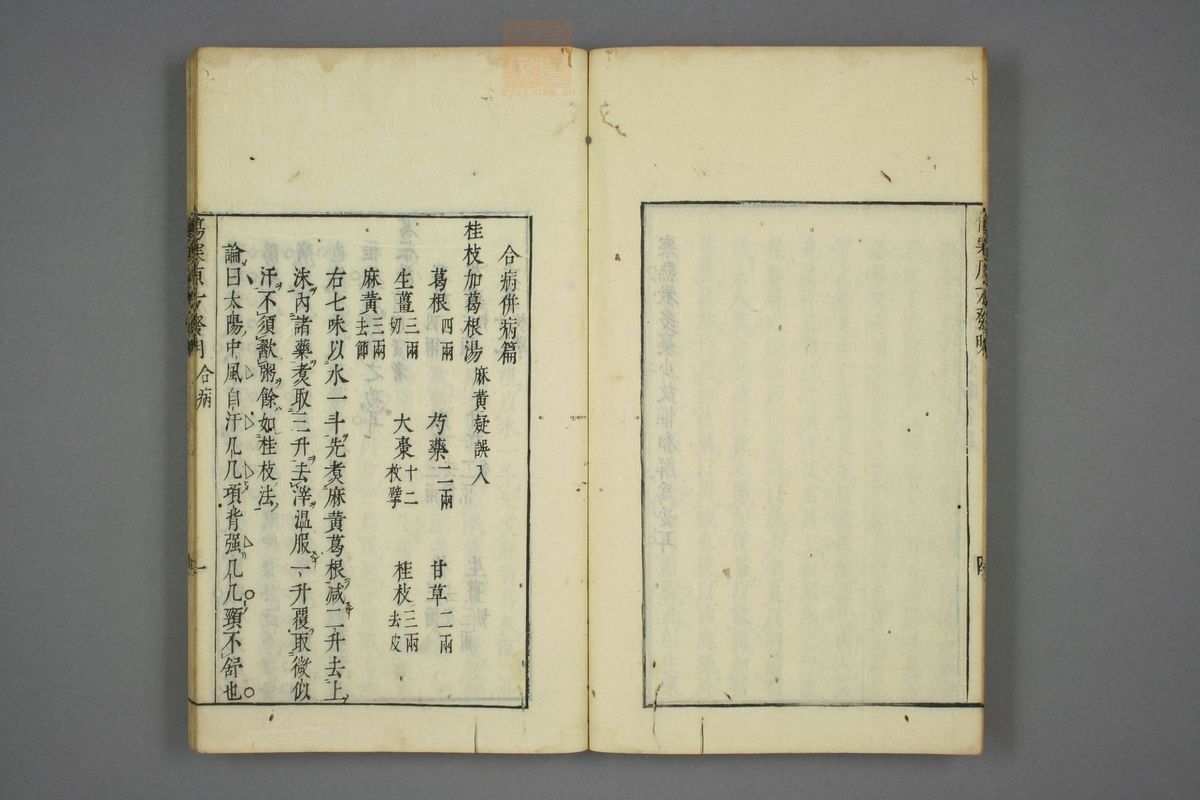 合病併病篇
桂枝加葛根湯 麻黄疑誤入
葛根四兩 芍藥二兩 甘草二兩
生薑三兩切 大棗十二枚擘 桂枝三兩去皮
麻黄三兩去節
右七味以水一斗先煮麻黄葛根減二升去上
沫內諸藥煮取三升去滓温服一升覆取微似
汗不須歠粥餘如桂枝法
論曰太陽中風自汗几几項背强几几頸不舒也
合病
zysj.com.cn